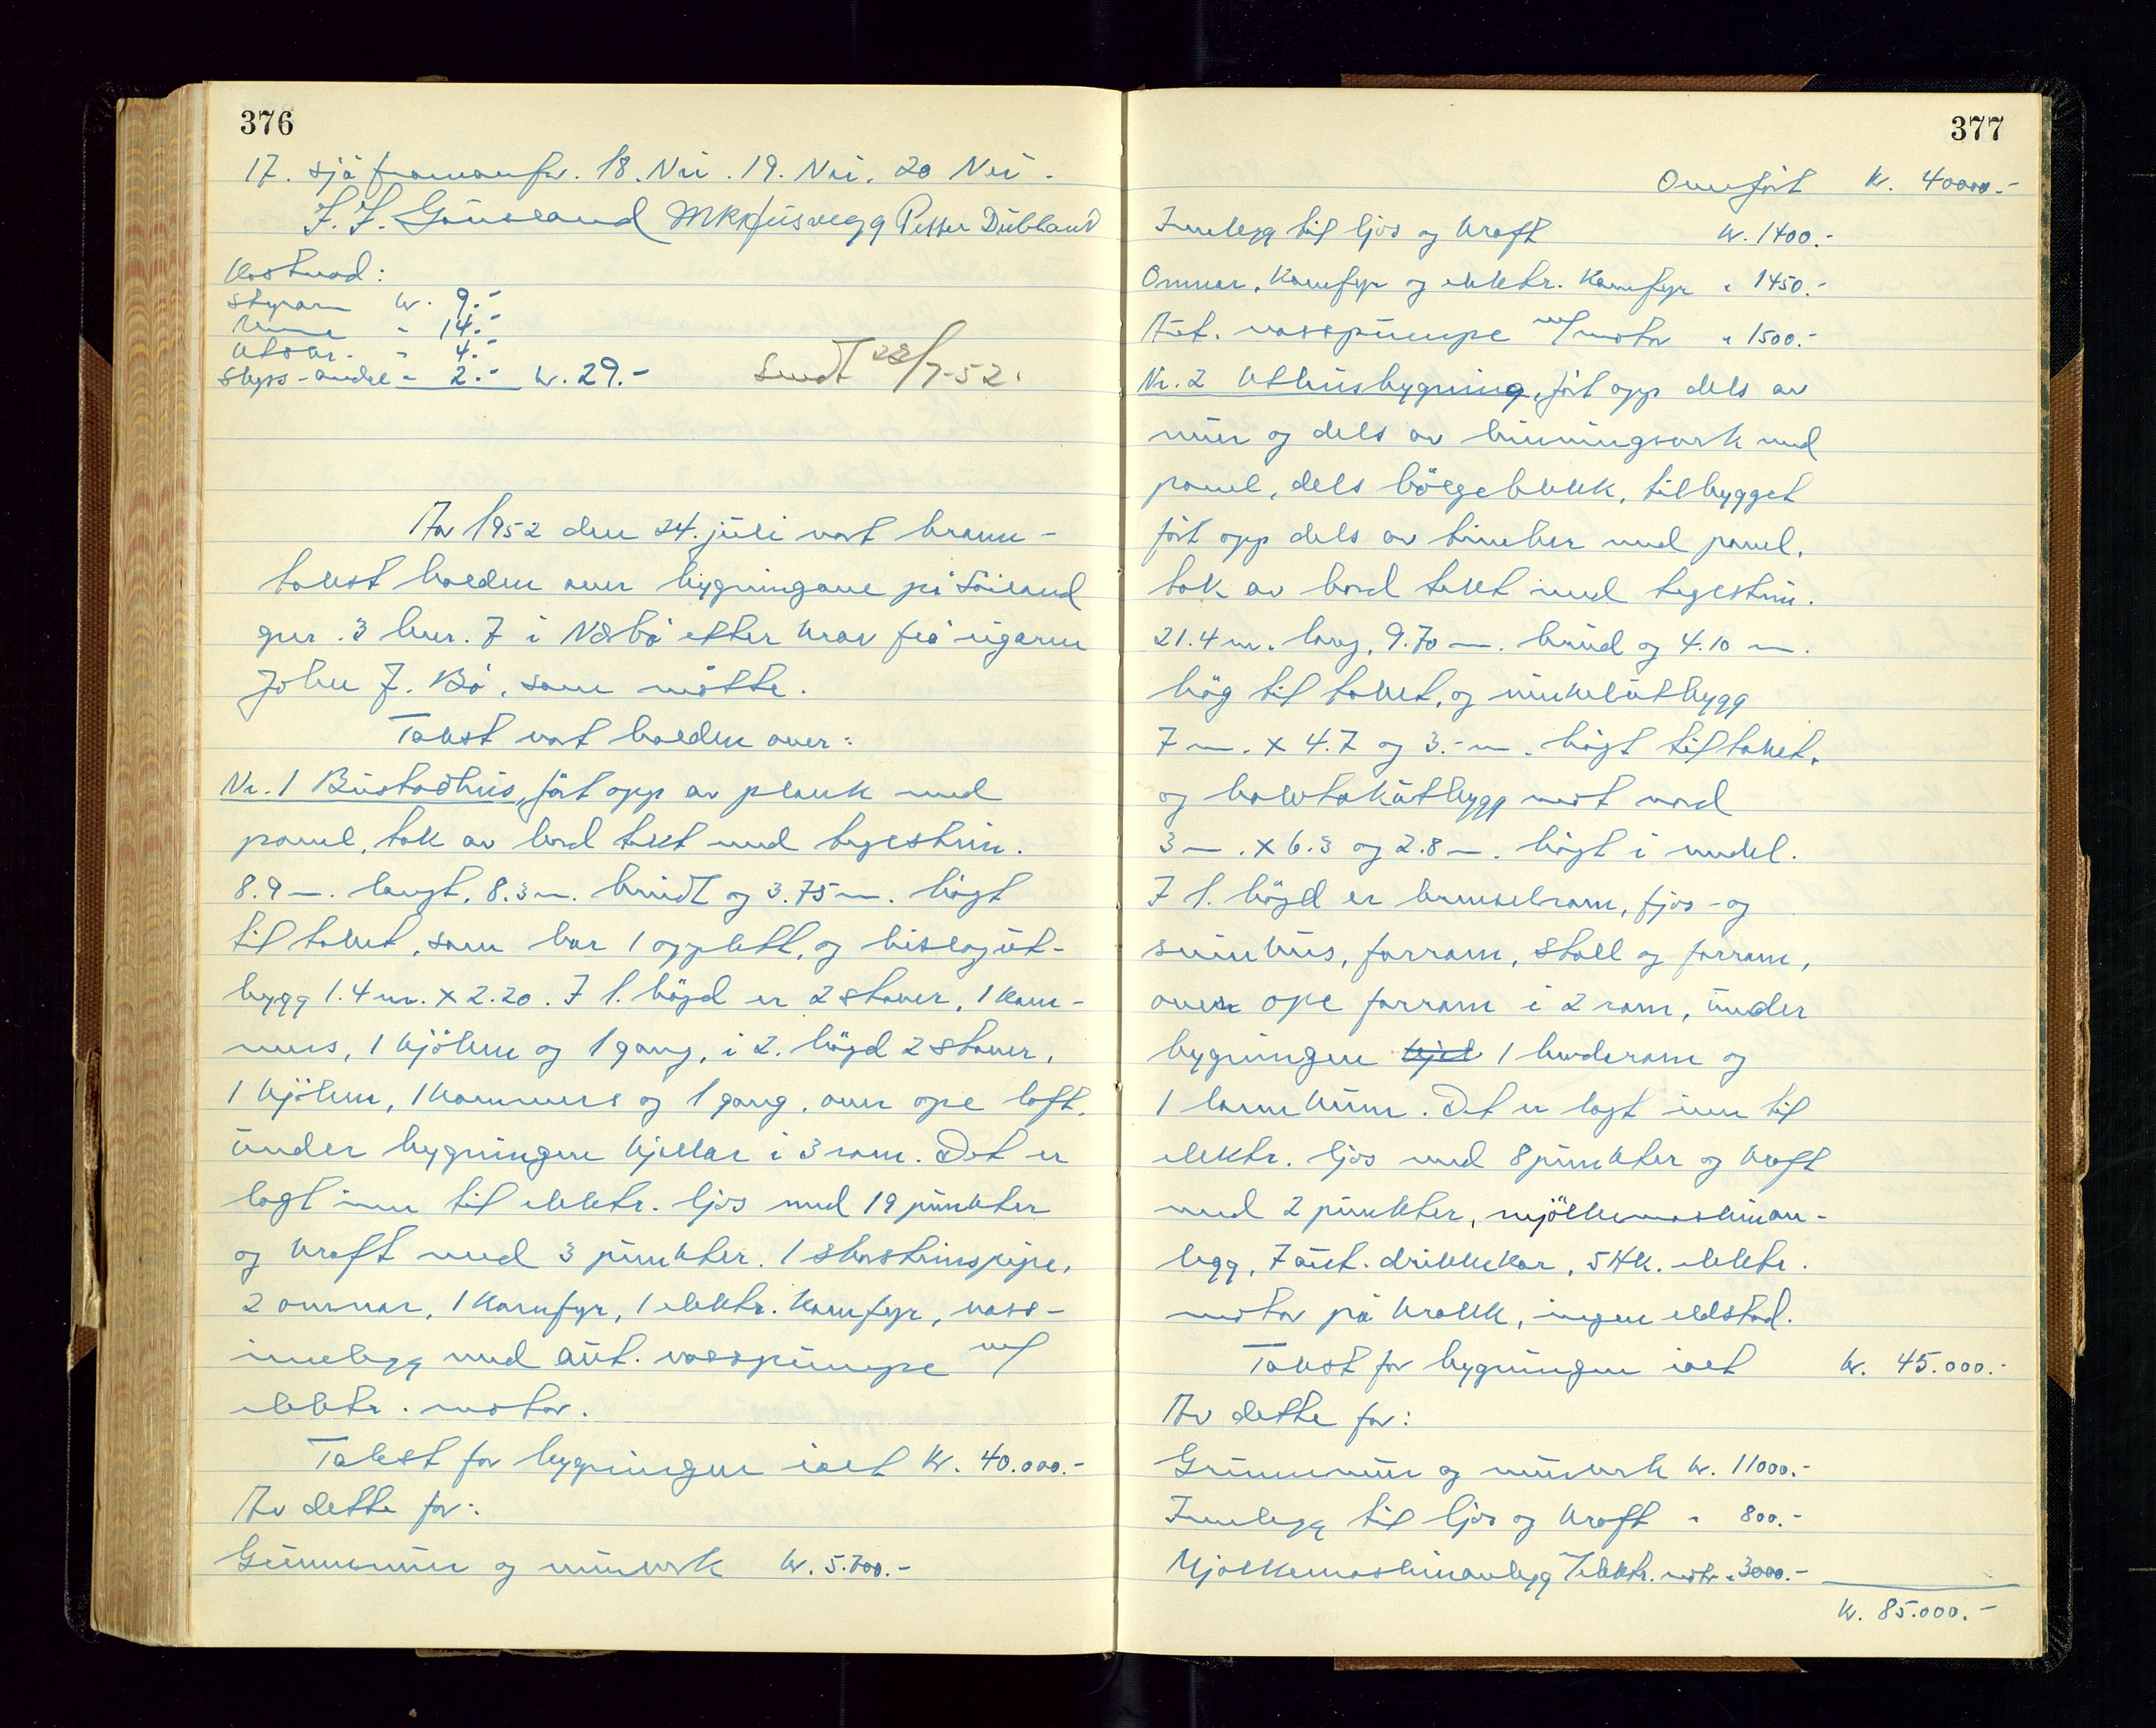 376
17. sjå framanfor. 18. Nei. 19. Nei. 20 Nei.
J. J. Gausland M K Kjusvegg Petter Dubland
Kostnad:
Styraren kr. 9.-
Menn " 14.-
Utskr. " 4.-
Skyss-andel " 2.- kr. 29.-
Sendt 28/7-52.
År 1952 den 24. juli vart brann-
takst halden over bygningane på Søiland
gnr. 3 bnr. 7 i Nærbø etter krav frå eigaren
John J. Bø, som møtte.
Takst vart halden over:
Nr. 1 Bustadhus, ført opp av plank med
panel, tak av bord tekt med teglstein.
8.9 m. langt, 8.3 m. breidt og 3.75 m. högt
til taket, som har 1 opplett, og bislagut-
bygg 1.4 m. x 2.20. I 1. högd er 2 stover, 1 kam-
mers, 1 kjöken og 1 gang, i 2. högd 2 stover,
1 kjöken, 1 kammers og 1 gang, over ope loft,
under bygningen kjellar i 3 rom. Det er
lagt inn til elektr. ljos med 19 punkter
og kraft med 3 punkter. 1 skorsteinspipe,
2 omnar, 1 komfyr, 1 elektr. komfyr, vass-
innlegg med aut. vasspumpe m/
elektr. motor.
Takst for bygningen ialt kr. 40.000.-
Av dette for:
Grunnmur og murverk kr. 5.700.-
377
Omført kr. 40000.-
Innlegg til ljos og kraft kr. 1400.-
Omnar, Komfyr og elektr. Komfyr " 1450.-
Aut. vasspumpe m/motor " 1500.-
Nr. 2 Uthusbygning, ført opp dels av
mur og dels av binningsverk med
panel, dels bölgeblekk, tilbygget
ført opp dels av timber med panel,
tak av bord tekt med teglstein.
21.4 m. lang, 9.70 m. breid og 4.10 m.
hög til taket, og vinkelutbygg
7 m. x 4.7 og 3.- m. högt til taket,
og halvtakutbygg mot nord
3 m. x 6.3 og 2.8 m. högt i medel.
I 1. högd er brenselrom, fjos- og
svinhus, forrom, stall og forrom,
over ope forrom i 2 rom, under
bygningen kjel 1 hauderom og
1 landkum. Det er lagt inn til
elektr. ljos med 8 punkter og kraft
med 2 punkter, mjölkemaskinan-
legg, 7 aut. drikkekar, 5 Hk. elektr.
motor på krakk, ingen eldstad.
Takst for bygningen ialt kr. 45.000.-
Av dette for:
Grunnmur og murverk kr. 11000.-
Innlegg til ljos og kraft " 800.-
Mjölkemaskinanlegg / elektr. motor " 3000.-
kr. 85.000.-